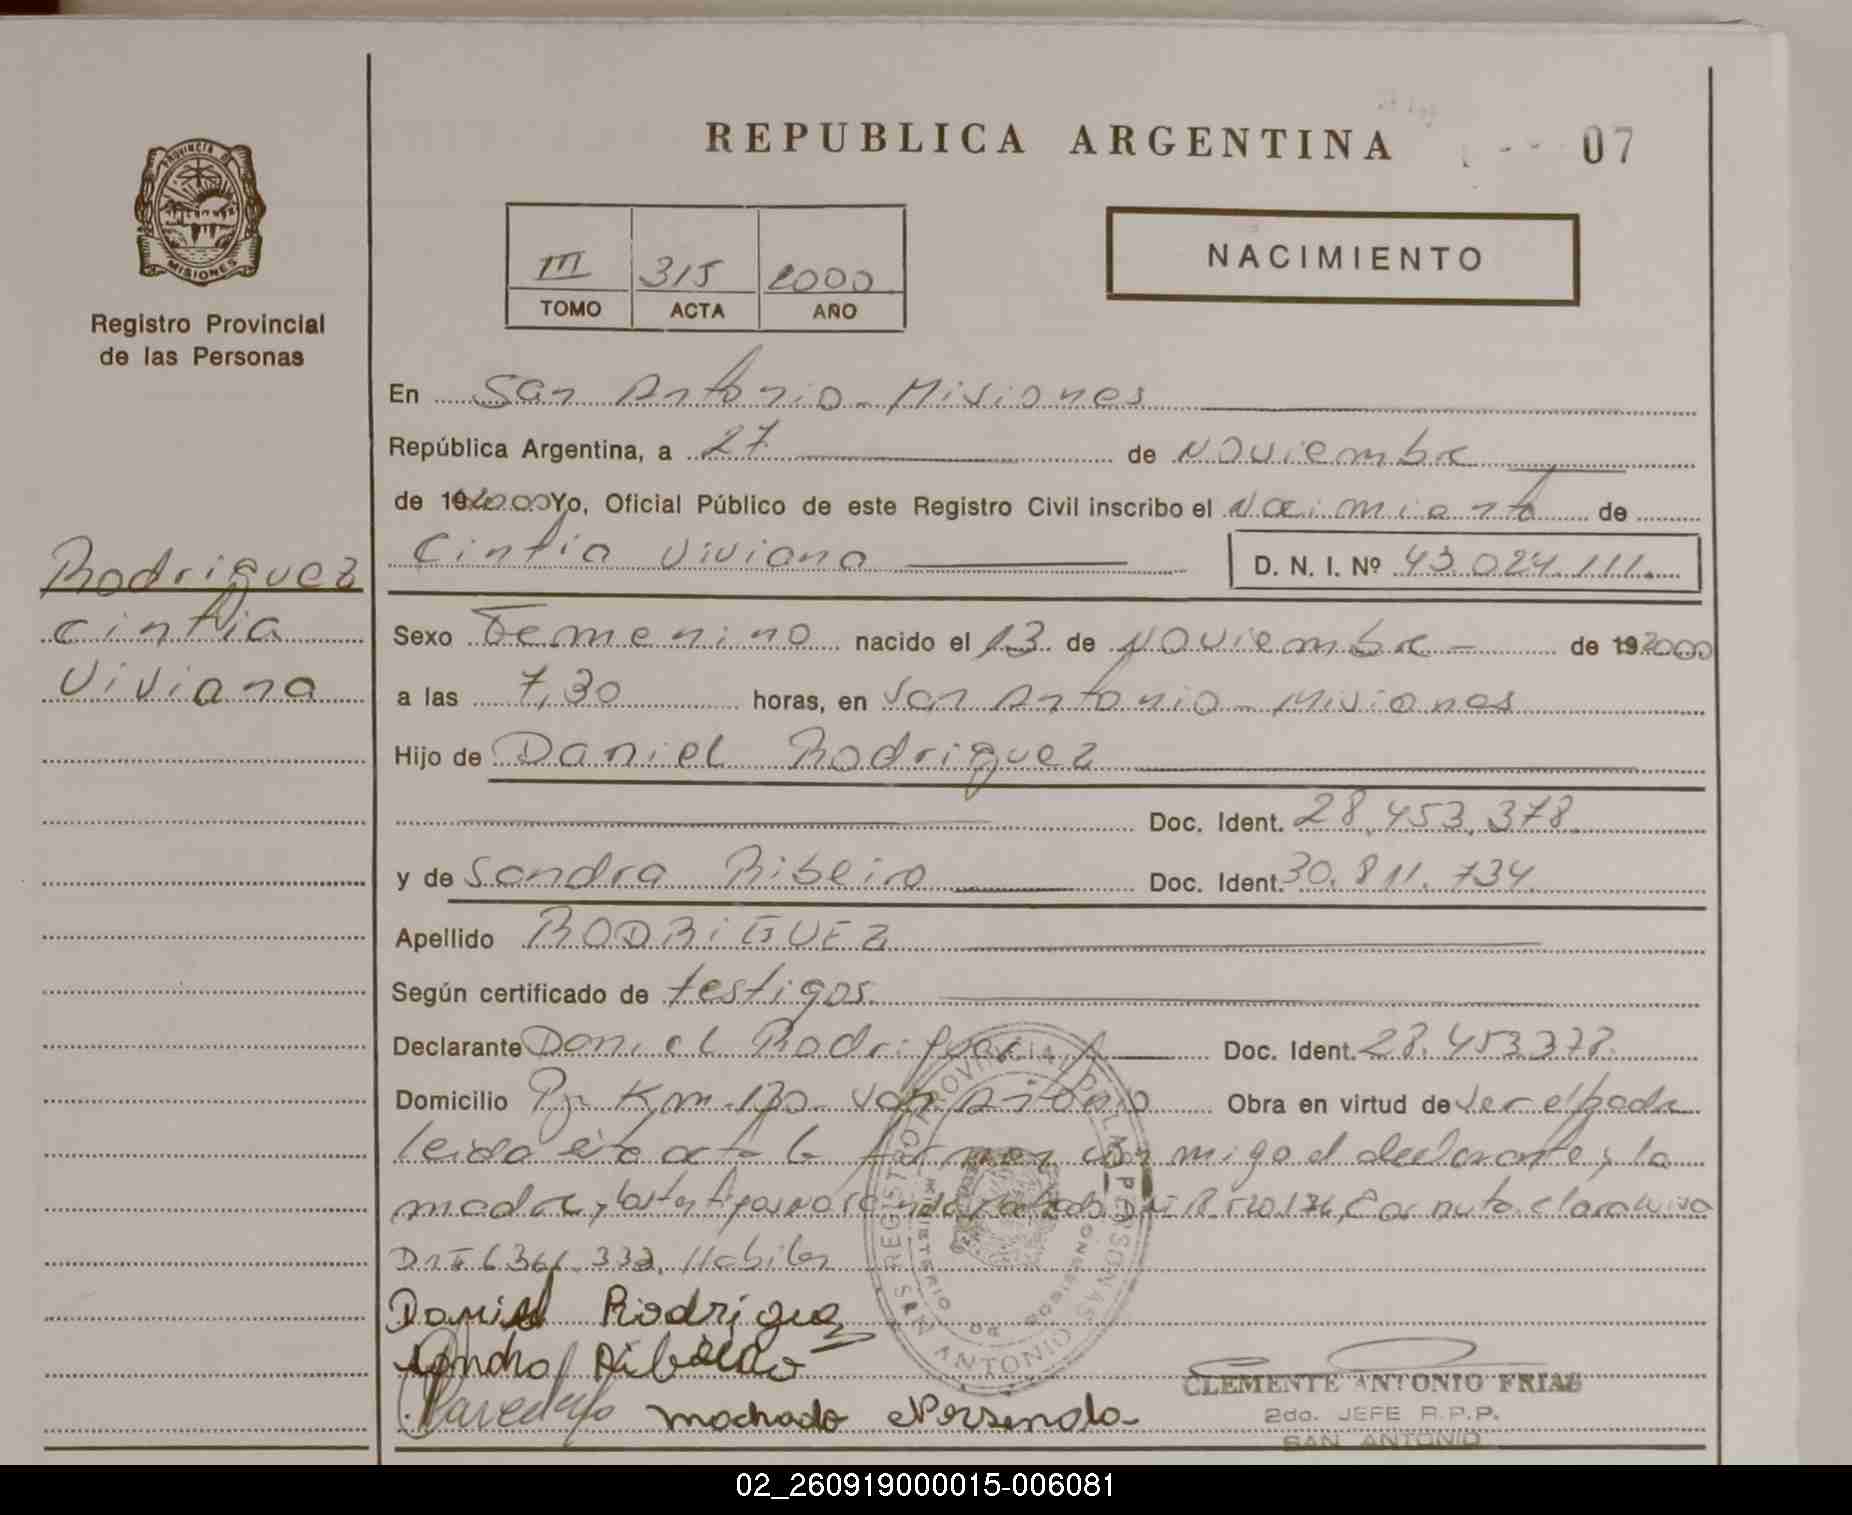 REPUBLICA ARGENTINA
07
PROVINCIA DE
MISIONES
Registro Provincial
de las Personas
III 315 2000
TOMO ACTA AÑO
NACIMIENTO
En San Antonio - Misiones
República Argentina, a 27 de Noviembre
de 192000 Yo, Oficial Público de este Registro Civil inscribo el Nacimiento de
Cintia Viviana D. N. I. Nº 43.024.111.
Rodriguez
Cintia
Viviana
Sexo Femenino nacido el 13 de Noviembre - de 192000
a las 7,30 horas, en San Antonio - Misiones
Hijo de Daniel Rodriguez
Doc. Ident. 28.453.378.
y de Sandra Ribeiro Doc. Ident. 30.811.734.
Apellido RODRIGUEZ
Según certificado de testigos
Declarante Daniel Rodriguez Doc. Ident. 28.453.378.
Domicilio Km. San Antonio Obra en virtud de ser el padre
leida este acta la firman conmigo el declarante, la
madre, los testigos clara luisa
DNI Habiles
Daniel Rodriguez
Machado
REGISTRO PROVINCIAL DE LAS PERSONAS
MINISTERIO DE GOBIERNO
SAN ANTONIO
CLEMENTE ANTONIO FRIAS
2do. JEFE R.P.P.
SAN ANTONIO
02_260919000015-006081